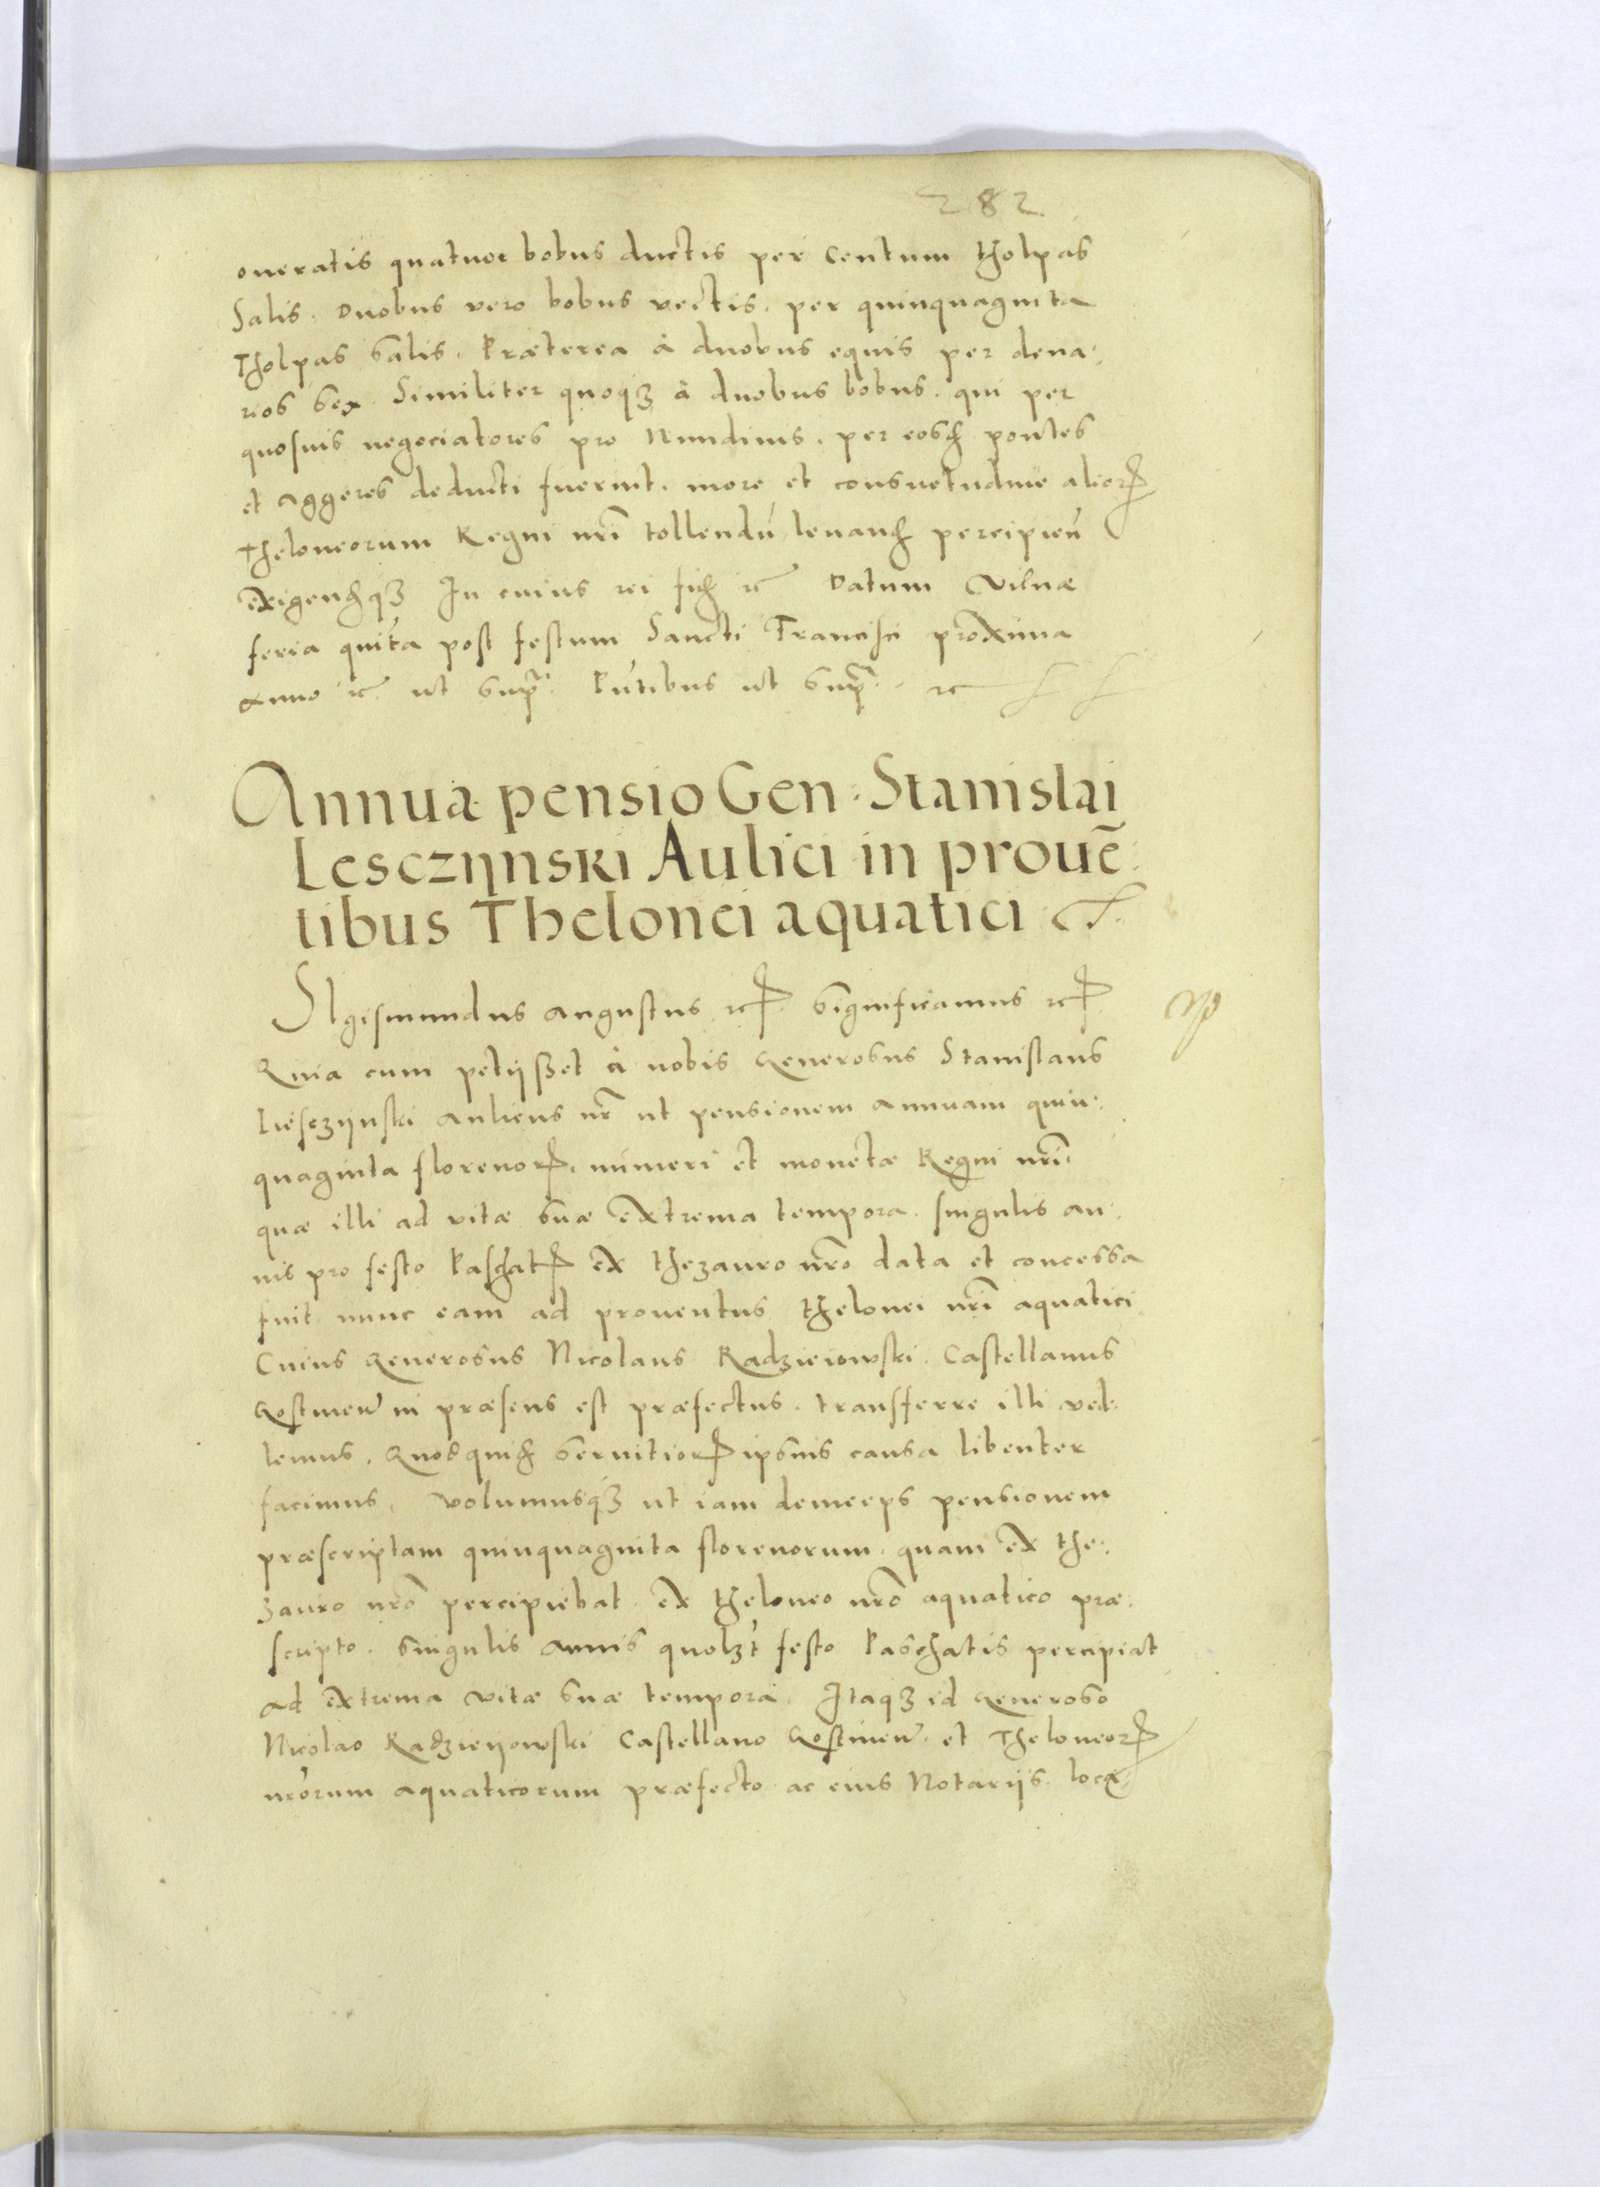 282
oneratis quatuor bobus ductis per Centum tholpas
Salis. Duobus vero bobus vectis. per quinquaginta
Tholpas Salis. Præterea à duobus equis per dena:
rios sex Similiter quoqꝫ à duobus bobus. qui per
quosuis negociatores pro Nundinis. per eosđ pontes
et Aggeres deducti fuerint. more et consuetudine alioꝝ
Theloneorum Regni nr̃i tollendũ leuanđ percipieñ
Exigenđqꝫ In cuius rei fiđ ꝛc̃ Datum Vilnæ
feria quĩta post festum Sancti Francisci proxima
Anno ꝛc̃ ut supr̃. Pñtibus ut supr̃. ꝛc
Annua pensio Gen. Stanislai
Lesczijnski Aulici in prouẽ:
tibus Thelonei aquatici
Sigismundus Augustus ꝛcꝝ. Significamus ꝛcꝝ.
Quia cum petijsset à nobis Generosus Stanislaus
Liesczijnski Aulicus nr̃ ut pensionem Annuam quin:
quaginta florenoꝝ. numeri et monetæ Regni nr̃i.
quæ illi ad vitæ suæ Extrema tempora. singulis an:
nis pro festo Paschatꝝ Ex thezauro nr̃o data et concessa
fuit nunc eam ad prouentus thelonei nr̃i aquatici
Cuius Generosus Nicolaus Radzieiowski. Castellanus
Gostineñ in præsens est præfectus. transferre illi vel:
lemus. Quod quiđ seruitioꝝ ipsius causa libenter
facimus. Volumusqꝫ ut iam deinceps pensionem
præscriptam quinquaginta florenorum. quam Ex the:
zauro nr̃o percipiebat. Ex theloneo nr̃o aquatico præ:
scripto. Singulis Annis quolꝫt festo Paschatis percipiat
Ad Extrema vitæ suæ tempora. Itaqꝫ id Generoso
Nicolao Radzieijowski Castellano Gostineñ. et Theloneoꝝ
nr̃orum aquaticorum præfecto ac eius Notarijs. loca